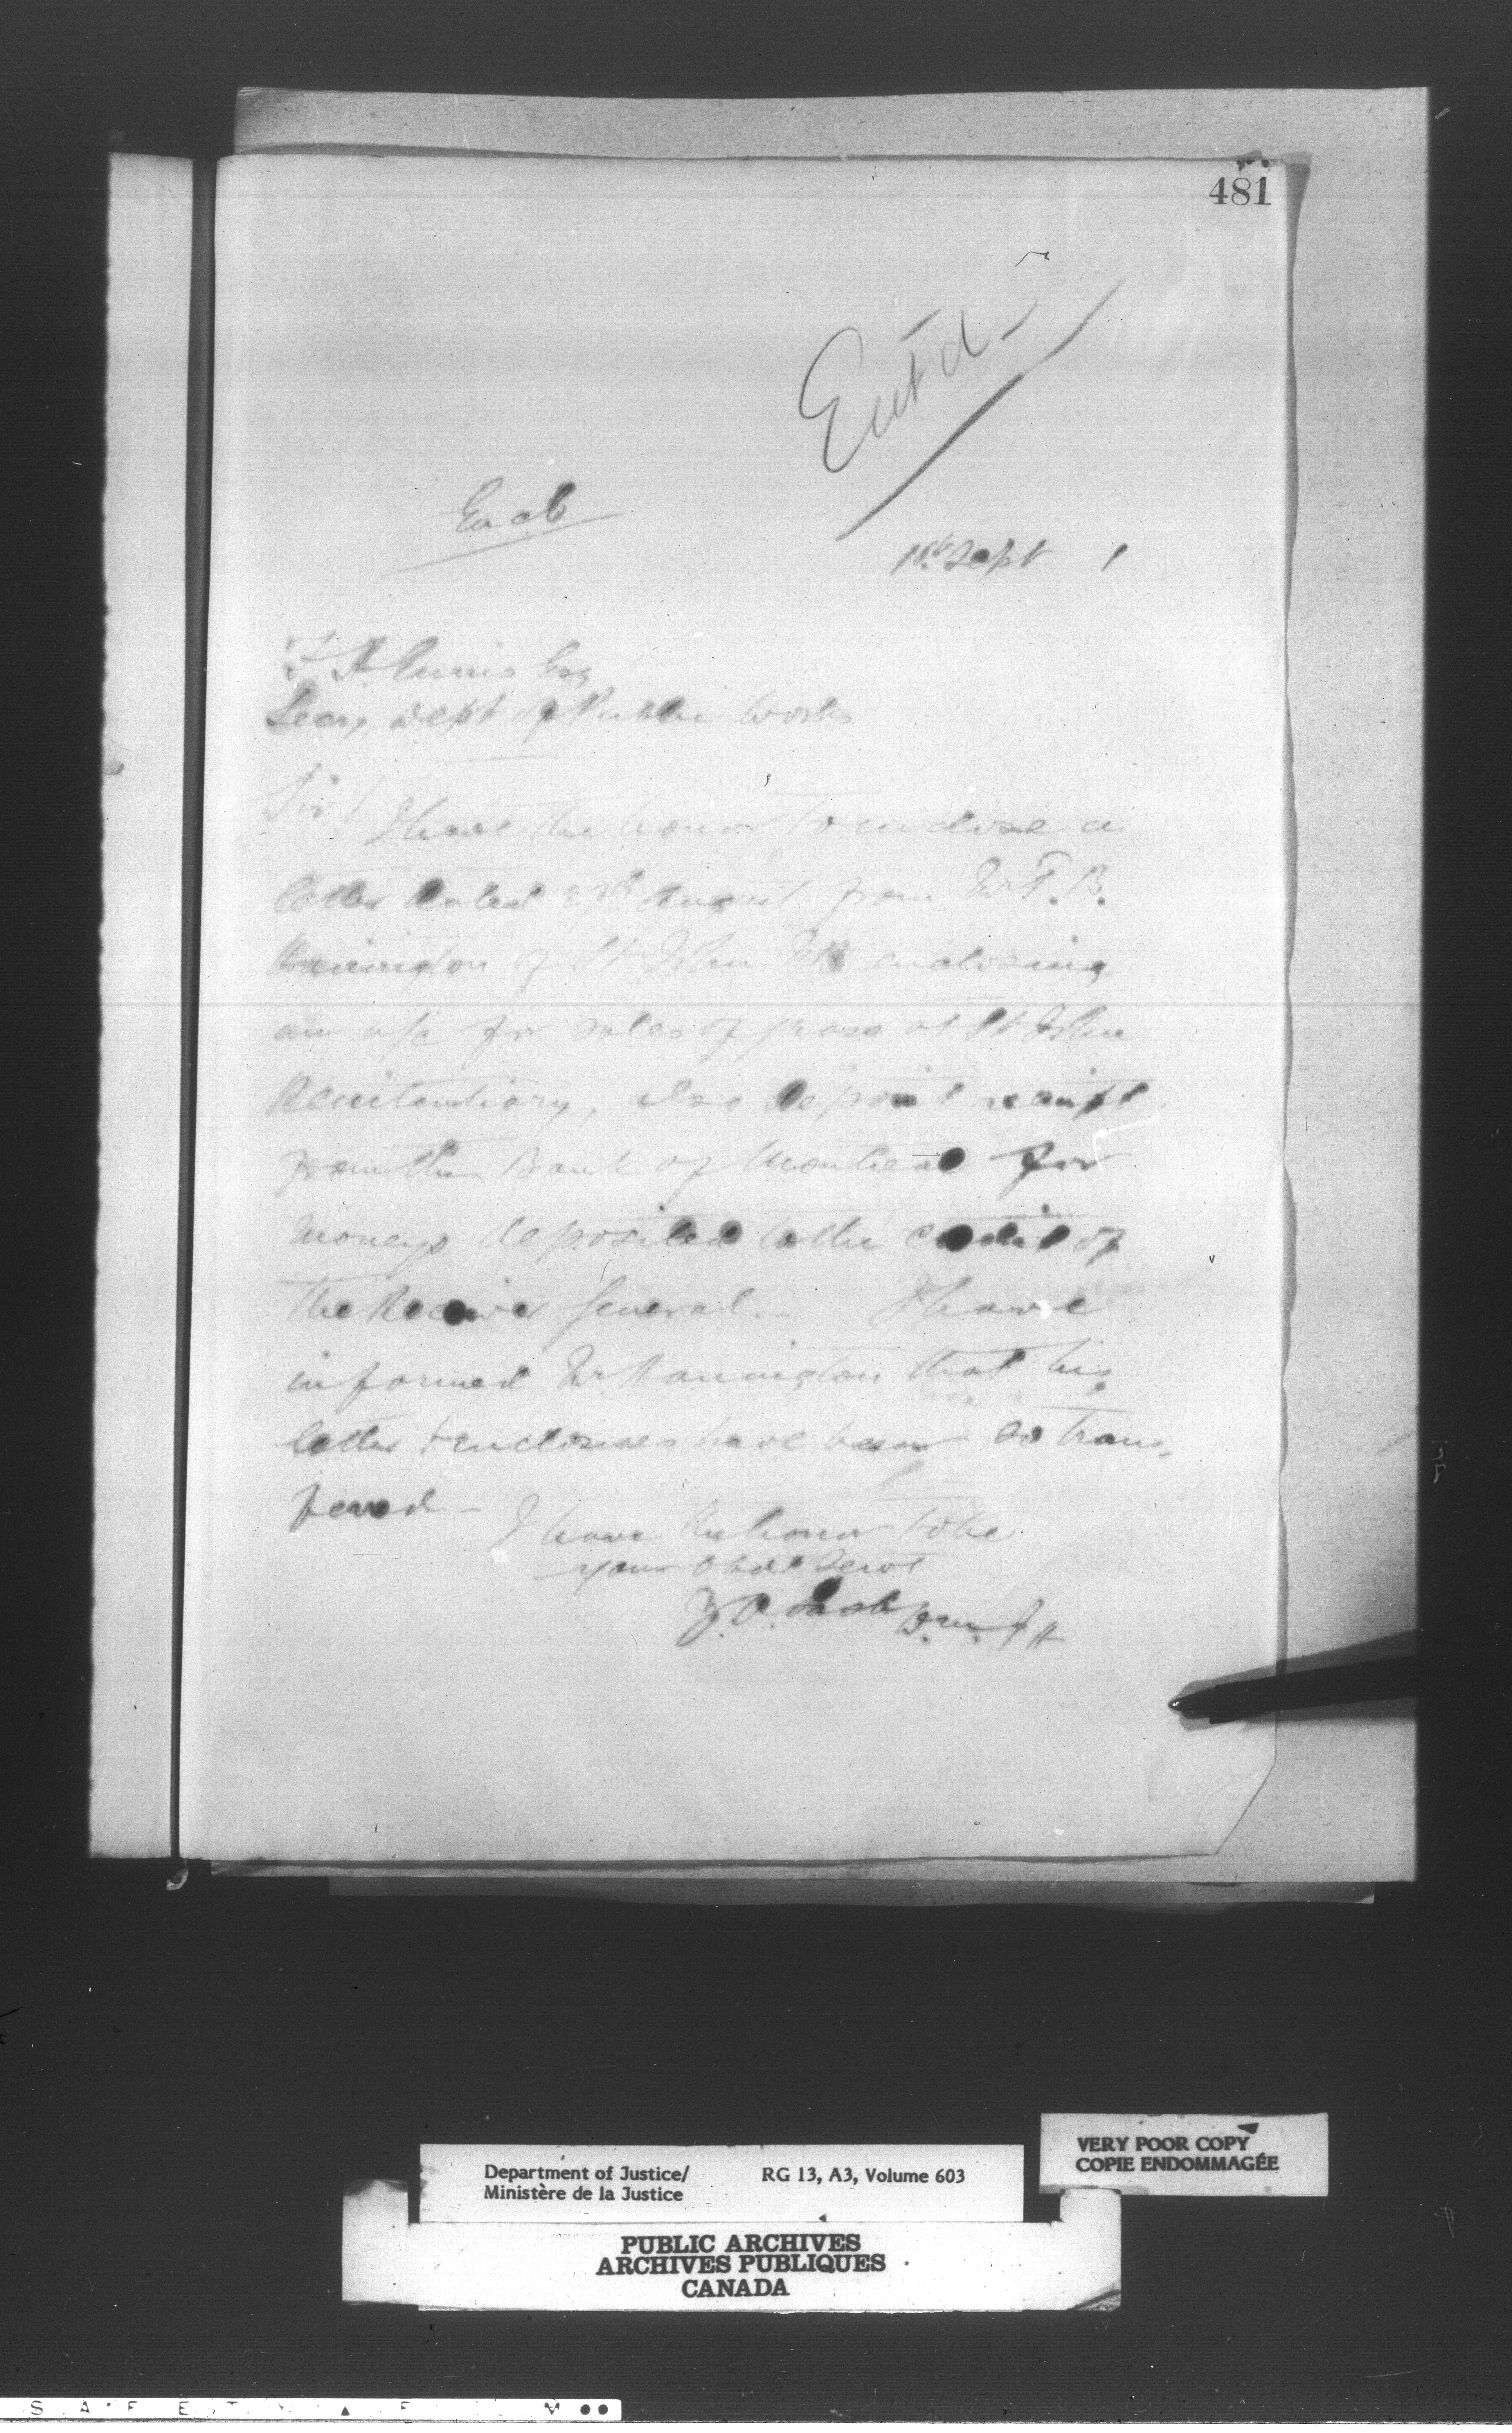 481
Ent'd
Encl
1st Sept 1
F H Ennis Esq
Secy Dept of Public Works
Sir/
I have the honor to enclose a
letter dated 27th August from Mr T. B.
Hanington of St John NB enclosing
an a/c for sales of grass at St John
Penitentiary, also deposit receipt
from the Bank of Montreal for
moneys deposited to the credit of
the Receiver General. - I have
informed Mr Hanington that his
letter & enclosures have been so trans-
fered -
I have the honor to be
your obdt servt
Z. A. Lash D. M. J
Department of Justice/
Ministère de la Justice
RG 13, A3, Volume 603
VERY POOR COPY
COPIE ENDOMMAGÉE
PUBLIC ARCHIVES
ARCHIVES PUBLIQUES
CANADA